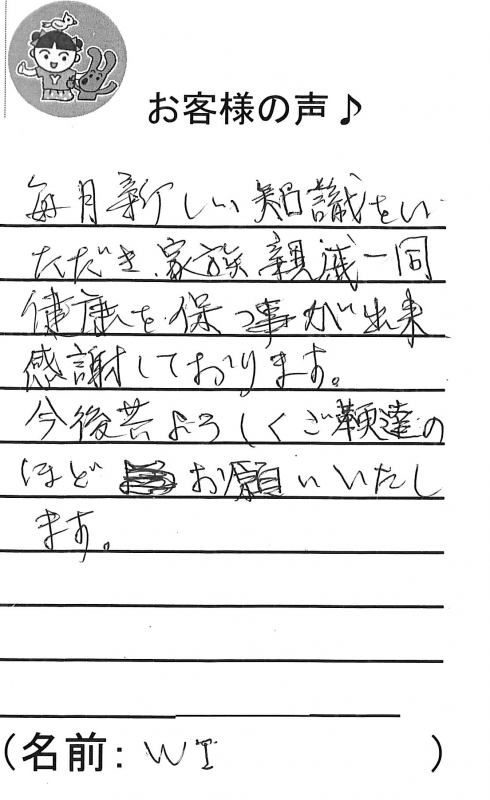 お客様の声♪
毎月新しい知識をい
ただき家族親戚一同
健康を保つ事が出来
感謝しております。
今後共よろしくご鞭達の
ほど お願いいたし
ます。
(名前: WI )